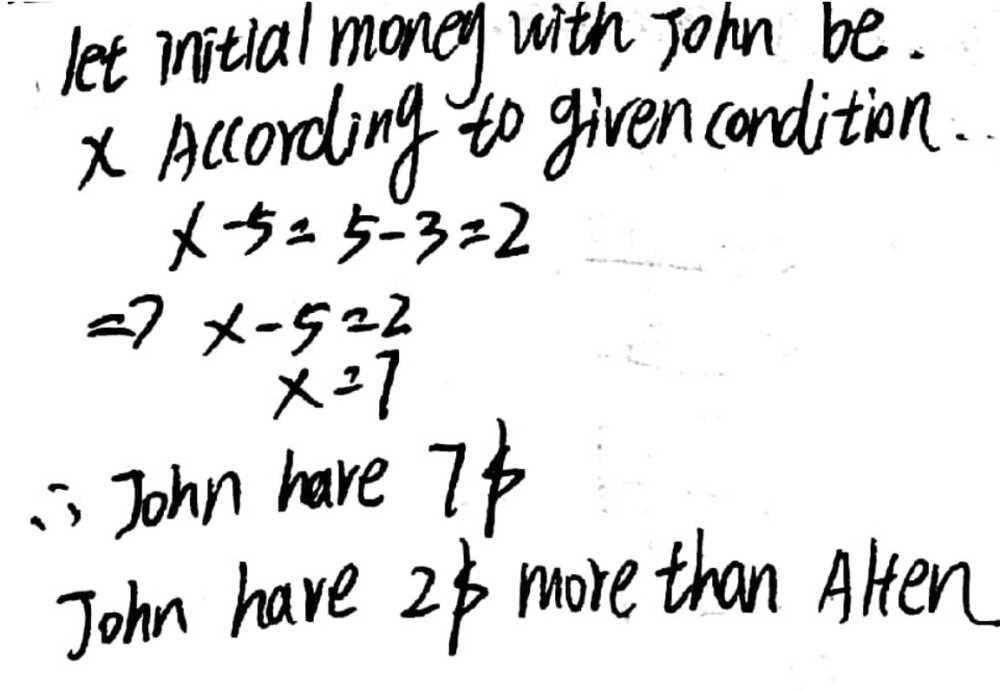 let initial money with John be.
x According to given condition..
x-5=5-3=2
=> x-5=2
x=7
∴ John have 7$
John have 2$ more than Alten